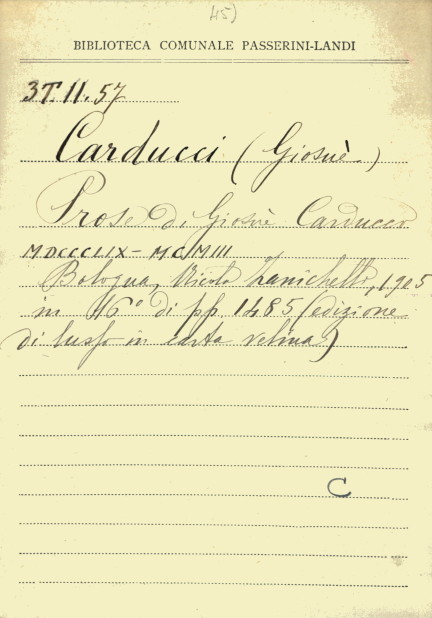 45)
BIBLIOTECA COMUNALE PASSERINI-LANDI
3T.II.57
Carducci (Giosuè)
Prose di Giosuè Carducci
MDCCCLIX - MCMIII
Bologna, Nicola Zanichelli, 1905
in 16° di pp. 1485 (edizione
di lusso in carta velina)
C